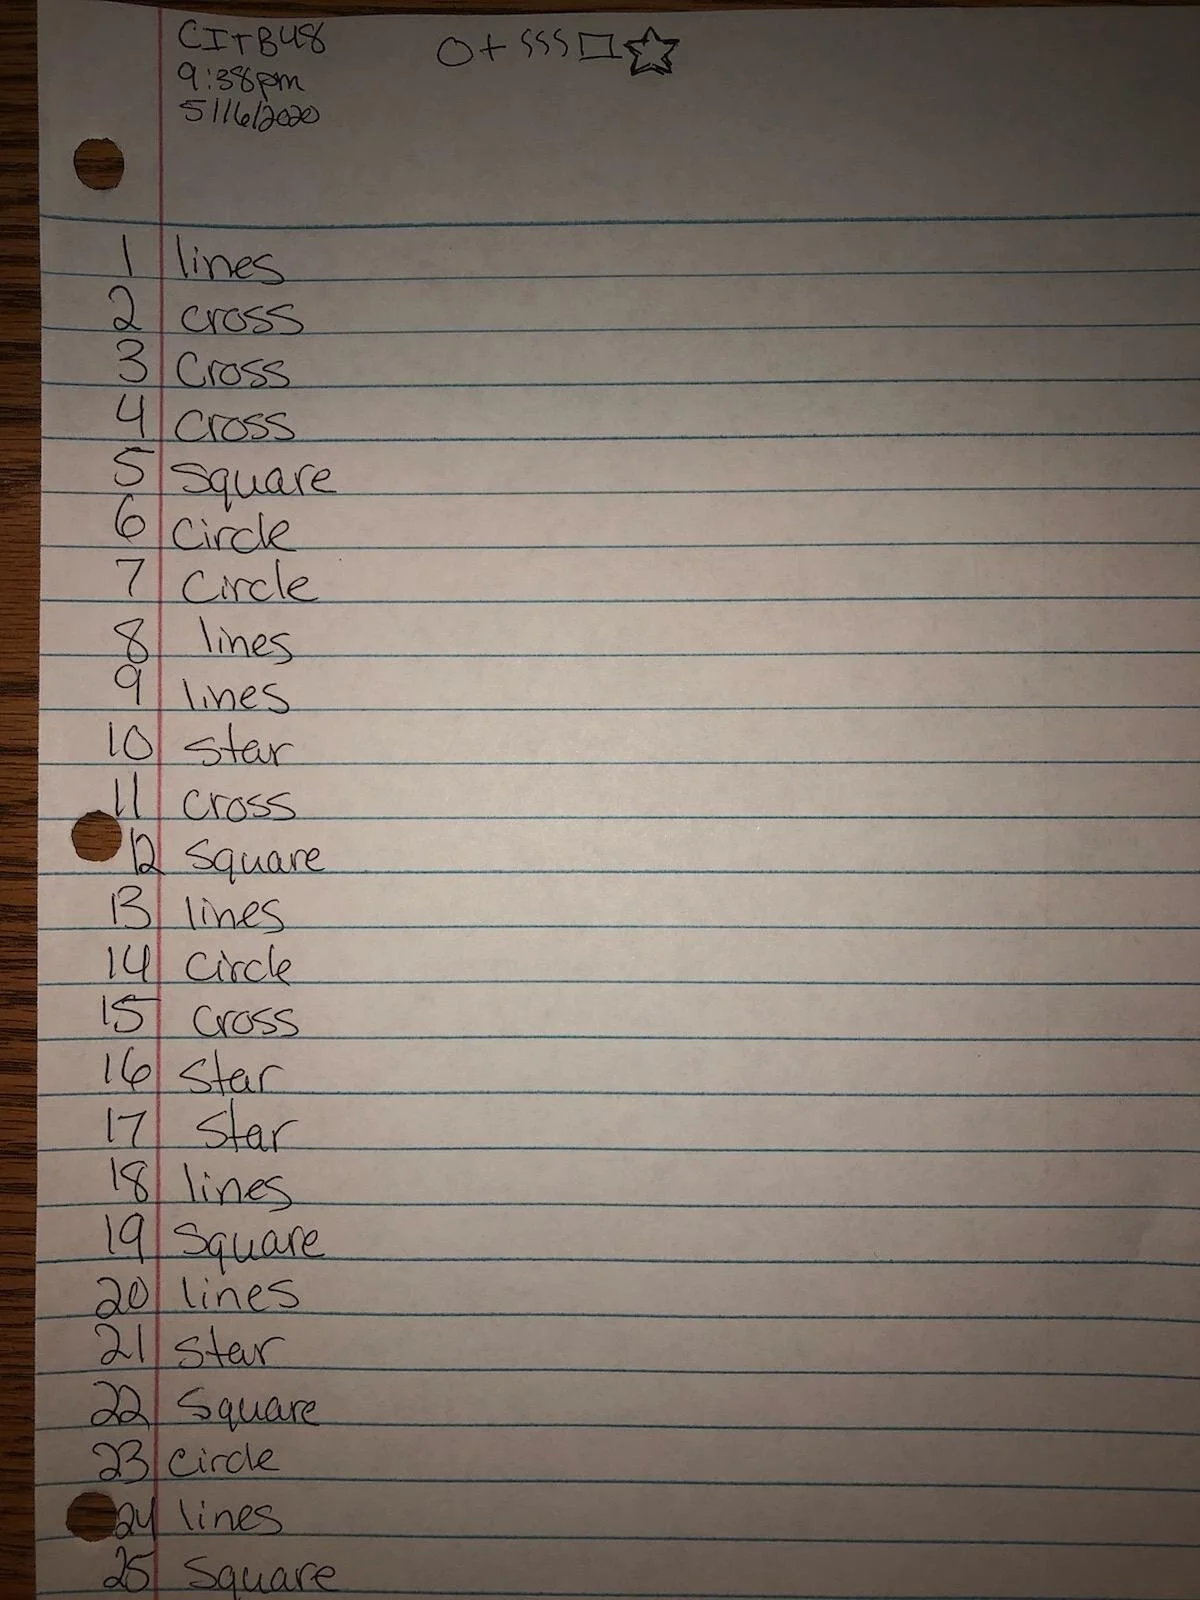 CITBU8
9:38pm
5/16/2020
1 lines
2 cross
3 Cross
4 cross
5 square
6 Circle
7 Circle
8 lines
9 lines
10 star
11 cross
12 square
13 lines
14 circle
15 cross
16 star
17 star
18 lines
19 square
20 lines
21 star
22 square
23 circle
24 lines
25 square